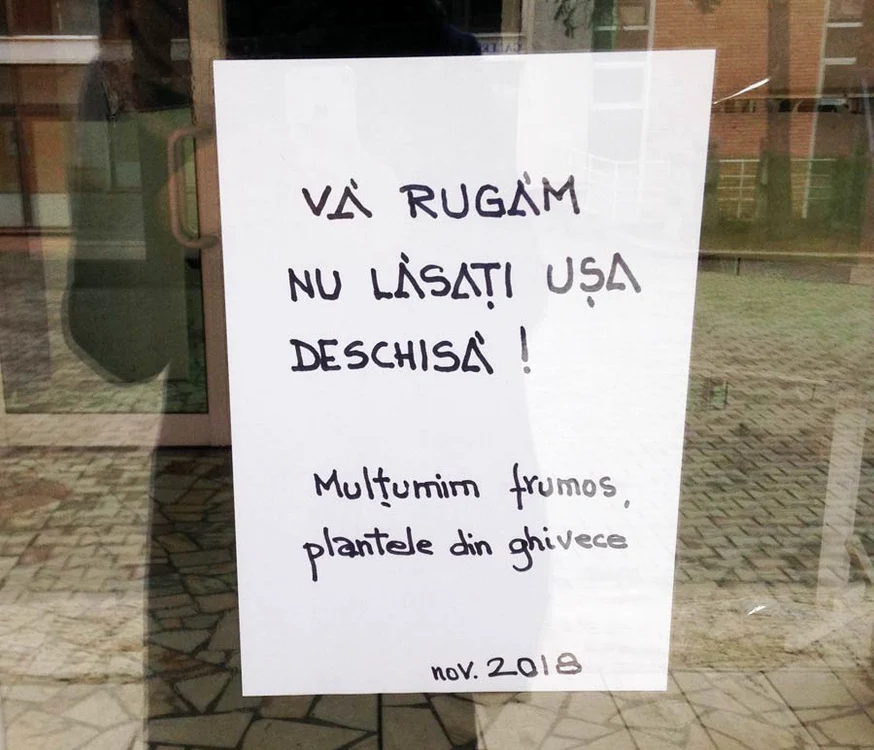 VĂ RUGĂM
NU LĂSAȚI UȘA
DESCHISĂ !
Mulțumim frumos,
plantele din ghivece
nov. 2018